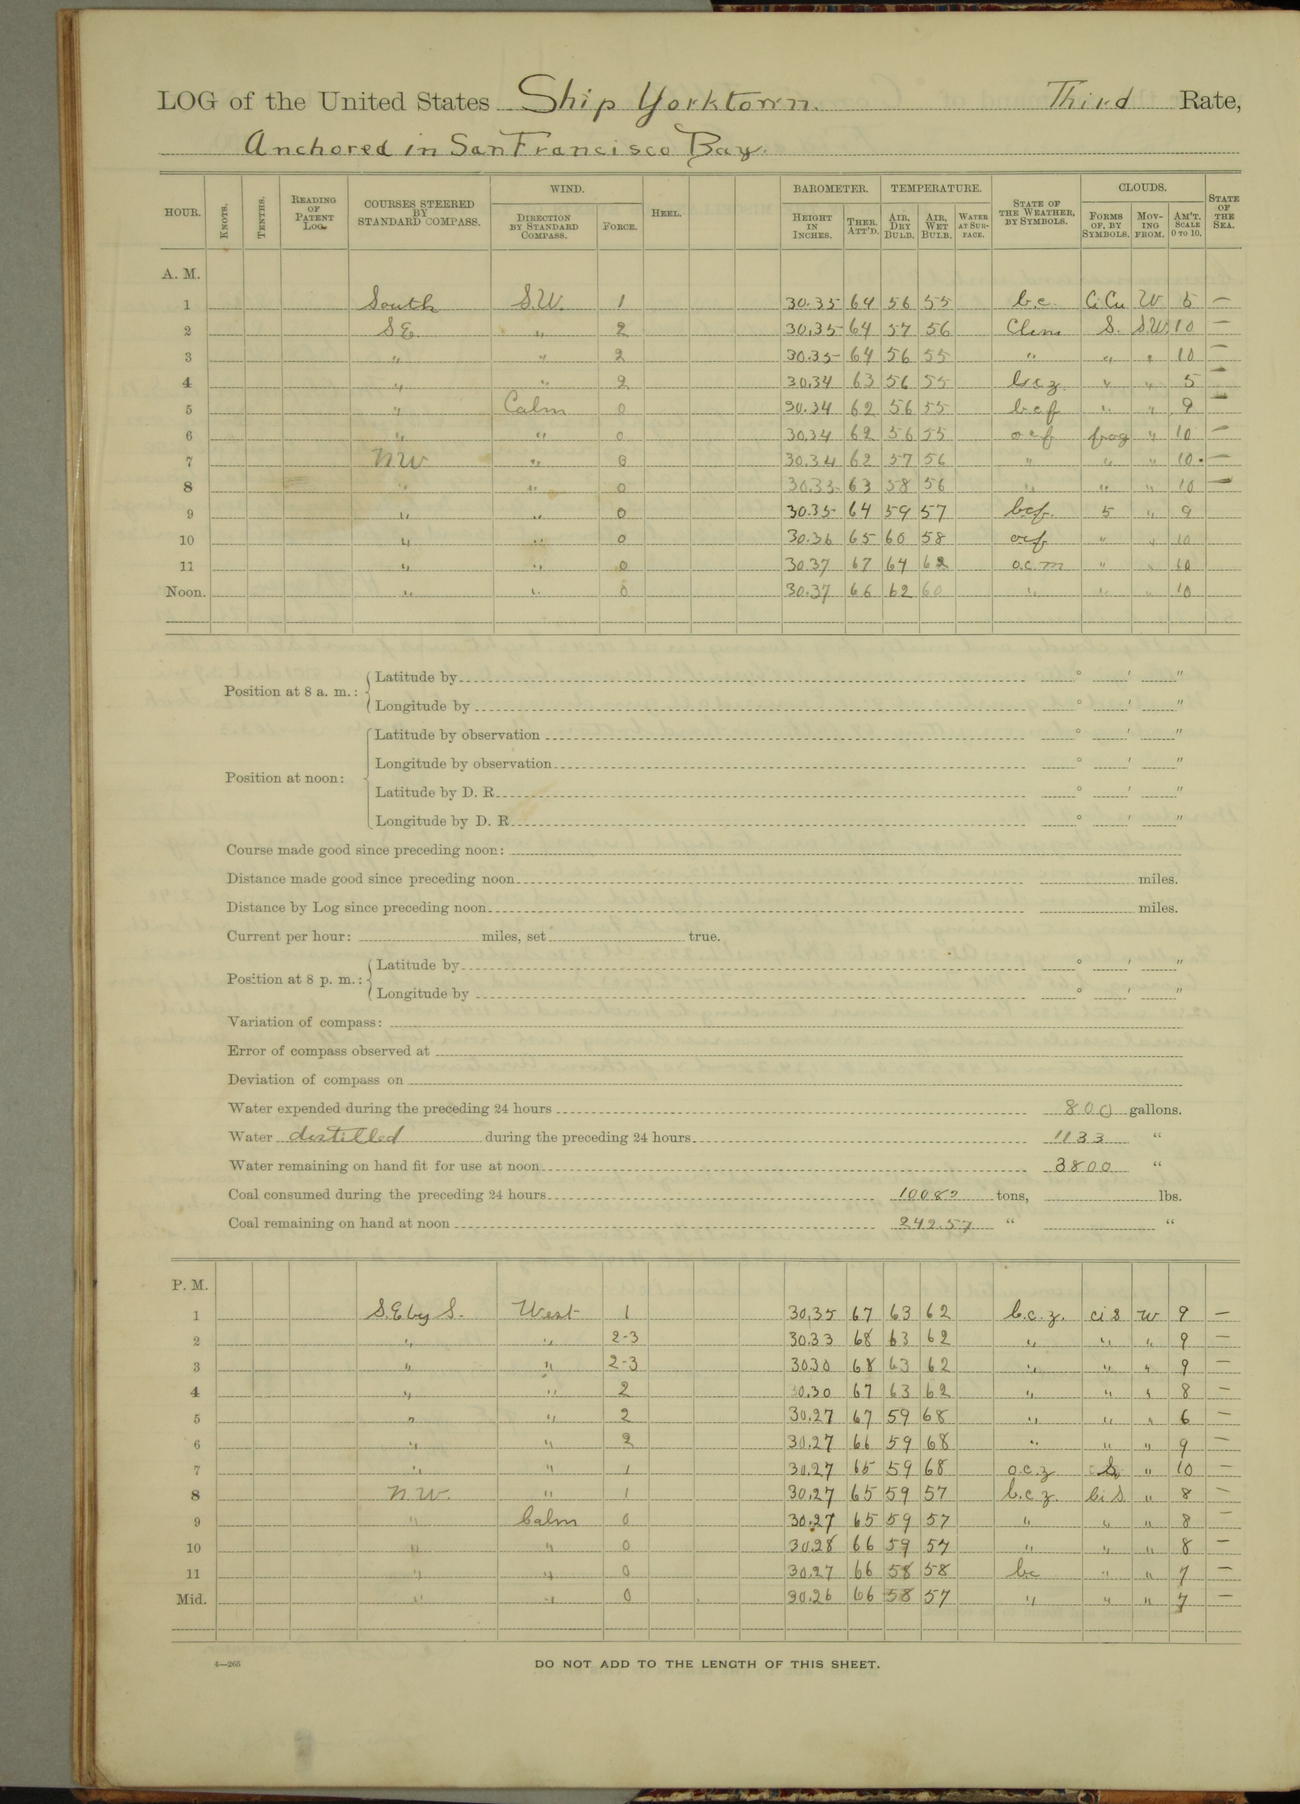 LOG of the United States Ship Yorktown. Third Rate,
Anchored in San Francisco Bay.
HOUR. KNOTS. TENTHS. READING OF PATENT LOG. COURSES STEERED BY STANDARD COMPASS. WIND. DIRECTION BY STANDARD COMPASS. FORCE. HEEL. BAROMETER. HEIGHT IN INCHES. THER. ATT'D. TEMPERATURE. AIR, DRY BULB. AIR, WET BULB. WATER AT SURFACE. STATE OF THE WEATHER, BY SYMBOLS. CLOUDS. FORMS OF, BY SYMBOLS. MOVING FROM. AM'T. SCALE 0 TO 10. STATE OF THE SEA.
A. M.
1 South S.W. 1 30.35 64 56 55 b.c. Ci Cu W 5 —
2 S.E. " 2 30.35 64 57 56 S. S.W. 10 —
3 " " 2 30.35 64 56 55 " " " 10 —
4 " " 2 30.34 63 56 55 b.c.z. " " 5 —
5 " Calm 0 30.34 62 56 55 b.c.f " " 9 —
6 " " 0 30.34 62 56 55 o.c.f fog " 10 —
7 NW " 0 30.34 62 57 56 " " " 10 —
8 " " 0 30.35 63 58 56 " " " 10 —
9 " " 0 30.35 64 59 57 b.c.f. S " 9
10 " " 0 30.36 65 60 58 o.c.f " " 10
11 " " 0 30.37 67 64 62 o.c.m " " 10
Noon. " " 0 30.37 66 62 60 " " " 10
Position at 8 a. m.: Latitude by ° ′ ″
Longitude by ° ′ ″
Position at noon: Latitude by observation ° ′ ″
Longitude by observation ° ′ ″
Latitude by D. R. ° ′ ″
Longitude by D. R. ° ′ ″
Course made good since preceding noon:
Distance made good since preceding noon miles.
Distance by Log since preceding noon miles.
Current per hour: miles, set true.
Position at 8 p. m.: Latitude by ° ′ ″
Longitude by ° ′ ″
Variation of compass:
Error of compass observed at
Deviation of compass on
Water expended during the preceding 24 hours 800 gallons.
Water distilled during the preceding 24 hours 1133 "
Water remaining on hand fit for use at noon 3800 "
Coal consumed during the preceding 24 hours tons, lbs.
Coal remaining on hand at noon 242.57 " "
P. M.
1 S.E by S. West 1 30.35 67 63 62 b.c.z. ci S W 9 —
2 " " 2-3 30.33 68 63 62 " " " 9 —
3 " " 2-3 30.30 68 63 62 " " " 9 —
4 " " 2 30.30 67 63 62 " " " 8 —
5 " " 2 30.27 67 59 68 " " " 6 —
6 " " 2 30.27 66 59 68 " " " 9 —
7 " " 1 30.27 65 59 68 o.c.z S " 10 —
8 N.W. " 1 30.27 65 59 57 b.c.z. Ci S " 8 —
9 " Calm 0 30.27 65 59 57 " " " 8 —
10 " " 0 30.28 66 59 57 " " " 8 —
11 " " 0 30.27 66 58 58 bc " " 7 —
Mid. " " 0 30.26 66 58 57 " " " 7 —
4—265
DO NOT ADD TO THE LENGTH OF THIS SHEET.